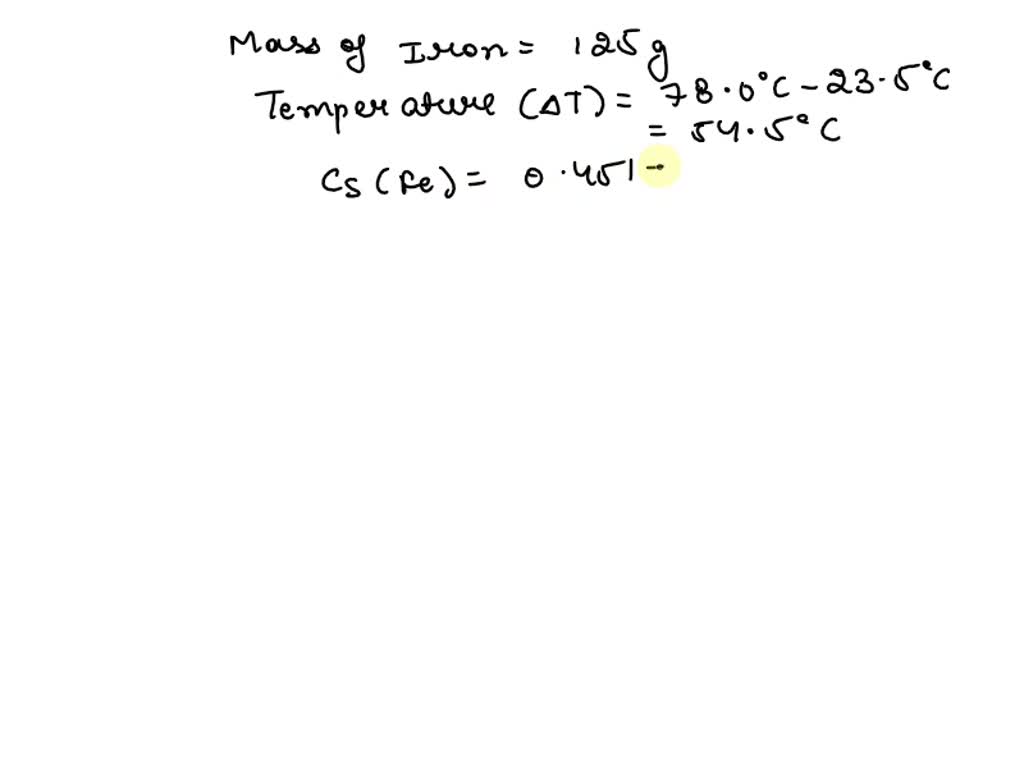 Mass of Iron = 125g
Temperature (ΔT) = 78.0°C - 23.5°C
= 54.5°C
Cs (Fe) = 0.451